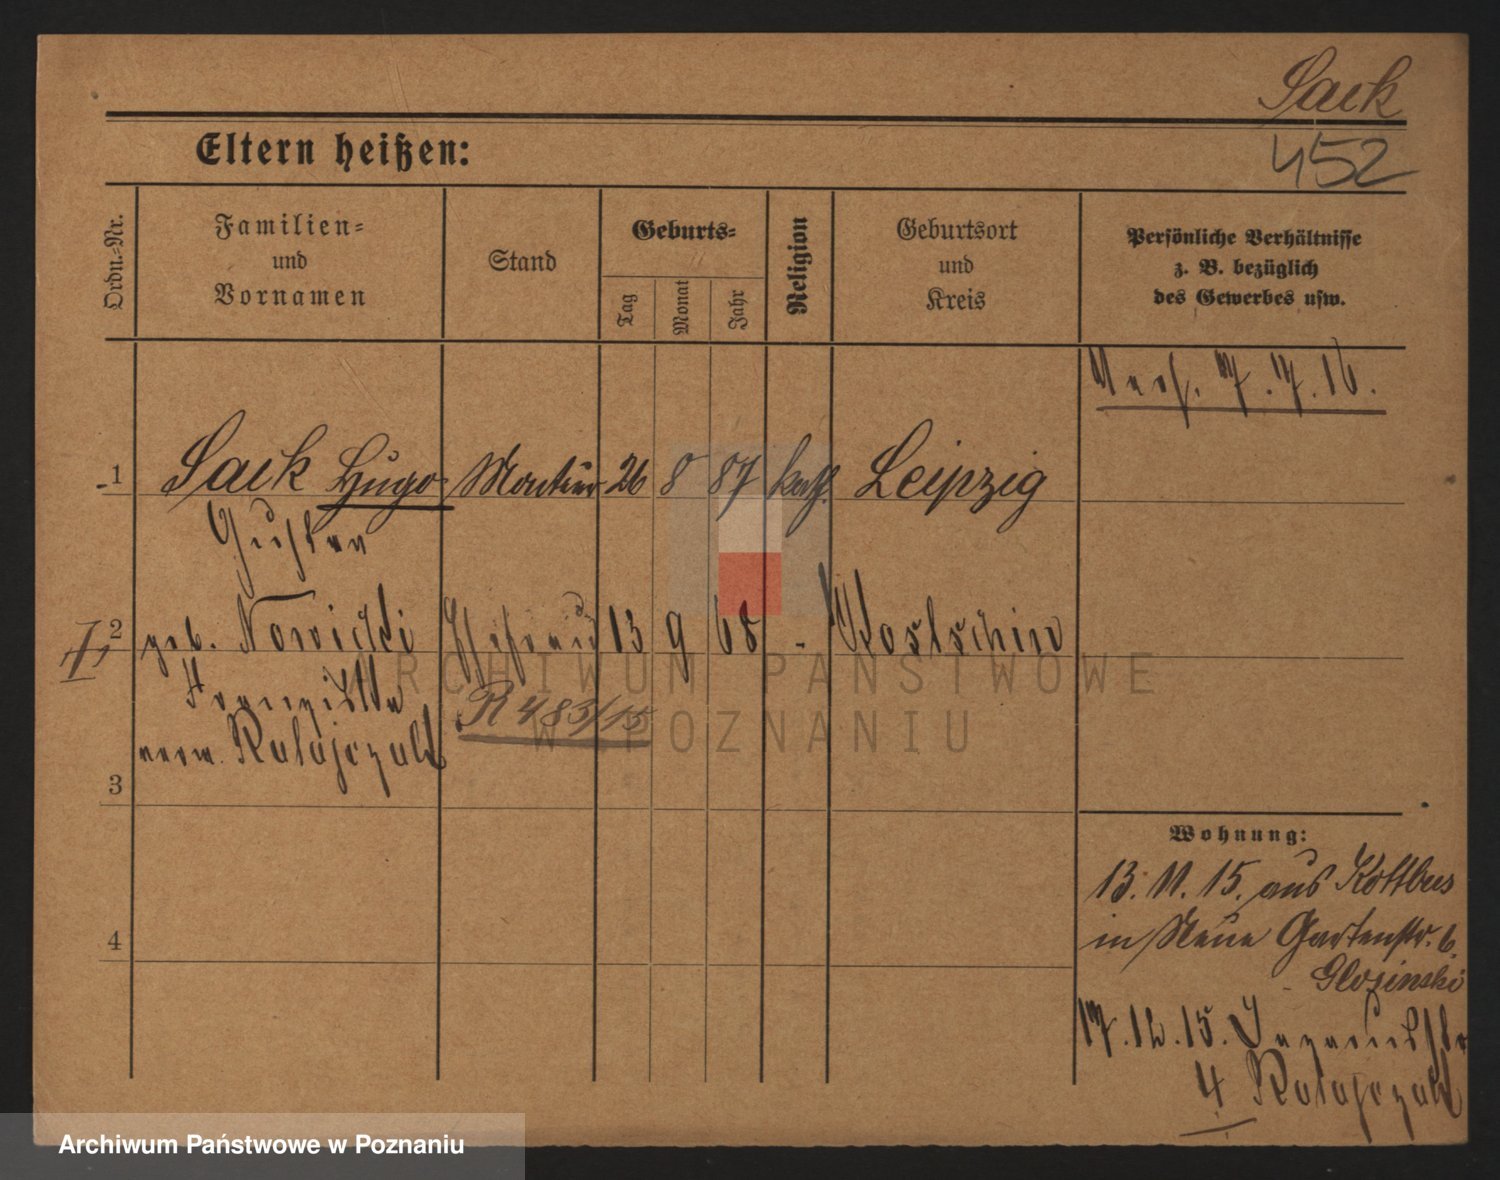 Sack
452
Eltern heißen:
Ordn.-Nr.
Familien-
und
Vornamen
Stand
Geburts-
Tag
Monat
Jahr
Religion
Geburtsort
und
Kreis
Persönliche Verhältnisse
z. B. bezüglich
des Gewerbes usw.
7. 7. 16.
1 Sack Hugo Monteur 26 8 87 kath. Leipzig
Gustav
2 geb. Nowicki Ehefrau 13 9 68 - Kostschin
Franziska
R 483/15
verw. Ratajczak
3
4
Wohnung:
13. 11. 15. aus Kottbus
in Neue Gartenstr. 6.
Glosinski
17. 12. 15.
4 Ratajczak
ARCHIWUM PAŃSTWOWE
W POZNANIU
Archiwum Państwowe w Poznaniu